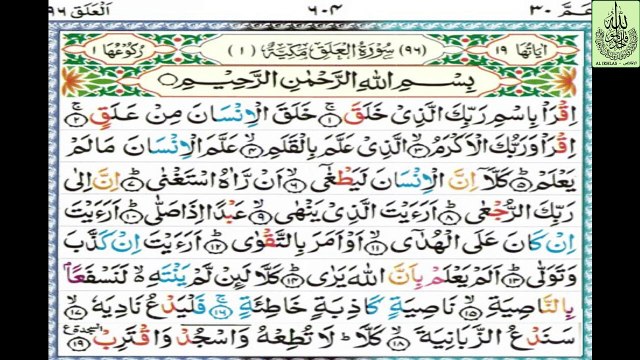 عم ٣٠ ٦٠٤ العلق ٩٦
اٰیاتها ١٩ (٩٦) سُوْرَةُ الْعَلَقِ مَكِّيَّةٌ (١) رکوعها ١
بِسْمِ اللهِ الرَّحْمٰنِ الرَّحِيْمِ
اِقْرَاْ بِاسْمِ رَبِّكَ الَّذِيْ خَلَقَ ١ خَلَقَ الْاِنْسَانَ مِنْ عَلَقٍ ٢
اِقْرَاْ وَرَبُّكَ الْاَكْرَمُ ٣ الَّذِيْ عَلَّمَ بِالْقَلَمِ ٤ عَلَّمَ الْاِنْسَانَ مَا لَمْ
يَعْلَمْ ٥ كَلَّاۤ اِنَّ الْاِنْسَانَ لَيَطْغٰۤى ٦ اَنْ رَّاٰهُ اسْتَغْنٰى ٧ اِنَّ اِلٰى
رَبِّكَ الرُّجْعٰى ٨ اَرَءَيْتَ الَّذِيْ يَنْهٰى ٩ عَبْدًا اِذَا صَلّٰى ١٠ اَرَءَيْتَ
اِنْ كَانَ عَلَى الْهُدٰۤى ١١ اَوْ اَمَرَ بِالتَّقْوٰى ١٢ اَرَءَيْتَ اِنْ كَذَّبَ
وَتَوَلّٰى ١٣ اَلَمْ يَعْلَمْ بِاَنَّ اللهَ يَرٰى ١٤ كَلَّا لَئِنْ لَّمْ يَنْتَهِ لَنَسْفَعًا
بِالنَّاصِيَةِ ١٥ نَاصِيَةٍ كَاذِبَةٍ خَاطِئَةٍ ١٦ فَلْيَدْعُ نَادِيَهٗ ١٧
سَنَدْعُ الزَّبَانِيَةَ ١٨ كَلَّا لَا تُطِعْهُ وَاسْجُدْ وَاقْتَرِبْ ١٩ السجدة
AL IKHLAS